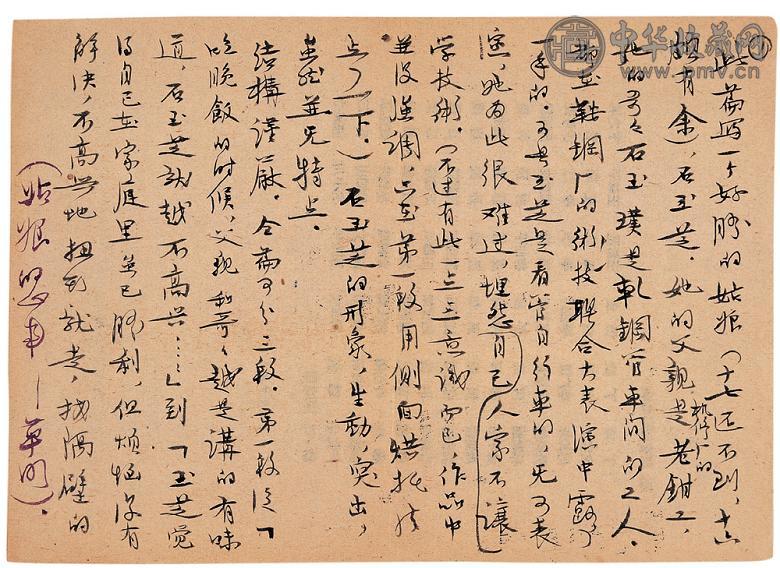 中华收藏网
www.pmv.cn
此篇写一个好胜的姑娘（十七还不到，十六
颇有余），石玉芝。她的父亲是机修厂的老钳工，
她的哥々石玉璞是轧钢厂车间的工人。
都在鞍钢厂的术技联合大表演中露了
一手的。可是玉芝是看管自行车的，无可表
演，她为此很难过，埋怨自己人家不让
学技术。（不过有此一点意识而已，作品中
并没强调，只在第一段用侧面烘托
点了一下。）石玉芝的形象，生动，突出，
虽然并无特点。
结构谨严。全篇可分三段。第一段从「
吃晚饭的时候，父亲和哥々越是讲的有味
道，石玉芝就越不高兴……」到「玉芝觉
得自己在家庭里虽已胜利，但烦恼没有
解决，不高兴地扭到就走，找隔壁的
（姑娘的心事—草明）.